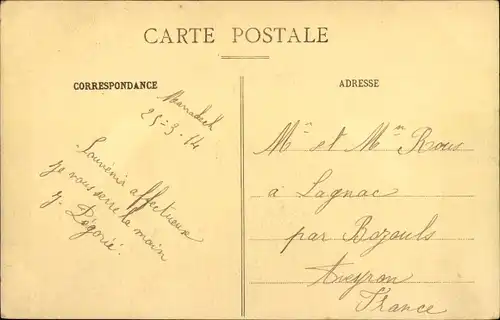 CARTE POSTALE
CORRESPONDANCE
Marrakech
25-3-14
Souvenir affectueux
je vous serre la main
J. Dégorié.
ADRESSE
Mr et Mme Roux
à Lagnac
par Bozouls
Aveyron
France